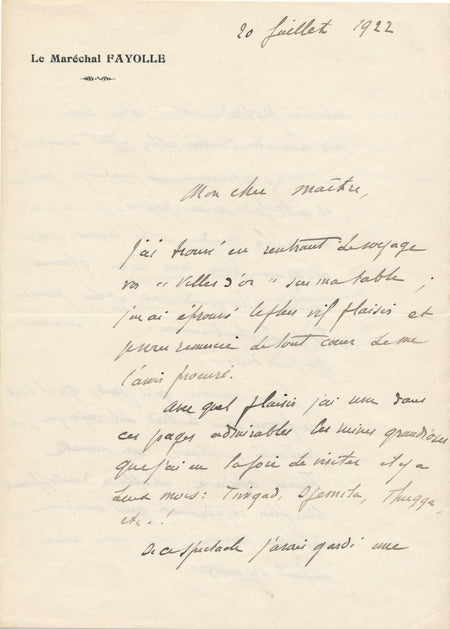 20 Juillet 1922
Le Maréchal FAYOLLE
Mon cher maître,
j'ai trouvé en rentrant de voyage
vos "Villes d'or" sur ma table ;
j'en ai éprouvé le plus vif plaisir et
je vous remercie de tout cœur de me
l'avoir procuré.
Avec quel plaisir j'ai revu dans
ces pages admirables les ruines grandioses
que j'ai eu la joie de visiter il y a
deux mois : Timgad, Djemila, Thugga,
etc. !
De ce spectacle j'avais gardé une